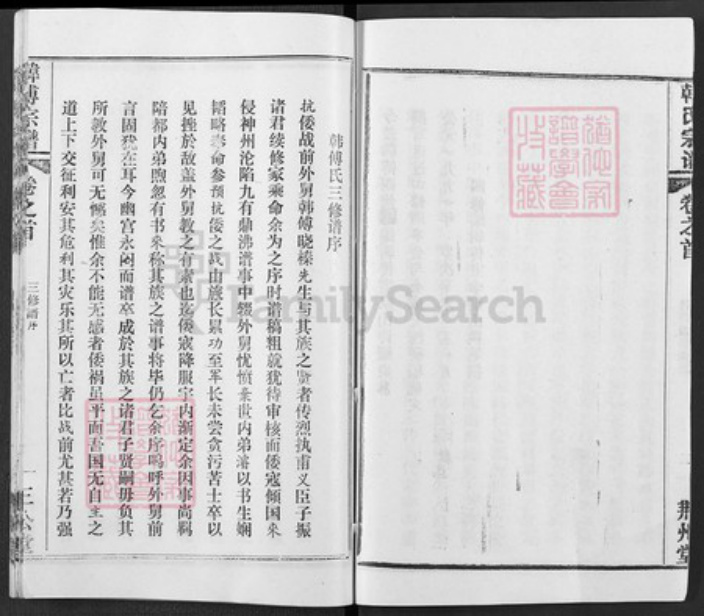 韩氏宗谱
卷之首
荆州堂
猶他家譜學會收藏
韩傅氏三修谱序
抗倭战前外舅韩傅晓榛先生与其族之贤者传烈执甫义臣子振
诸君续修家乘命余为之序时谱稿粗就犹待审核而倭寇倾国来
侵神州沦陷九有鼎沸谱事中辍外舅忧愤弃世内弟濬以书生娴
韬略奉命参预抗倭之战由族长累功至军长未尝贪污苦士卒以
见挫於敌盖外舅教之有素也迄倭寇降服宇内渐定余因事尚羁
陪都内弟煦忽有书来称其族之谱事将毕仍乞余序呜呼外舅前
言固犹在耳今幽宫永闷而谱卒成於其族之诸君子贤嗣毋负其
所教外舅可无憾矣惟余不能无感者倭祸虽平而吾国无自主之
道上下交征利安其危利其灾乐其所以亡者比战前尤甚若乃强
韩傅宗谱
卷之首
三修谱序
一
三公堂
FamilySearch